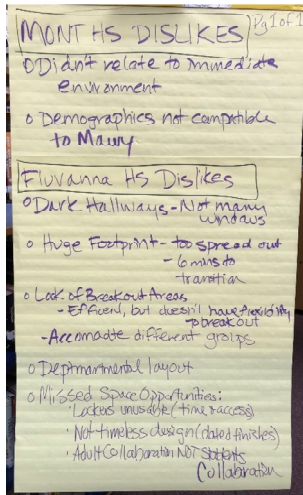 MONT HS DISLIKES Pg 1 of 1
o Didn't relate to immediate
environment
o Demographics not compatible
to Maury
Fluvanna HS Dislikes
o Dark Hallways - Not many
windows
o Huge Footprint - too spread out
- 6 mins to
transition
o Lack of Breakout Areas
- Efficient, but doesn't have flexibility
to breakout
- Accomadte different groups
o Deptmartmental layout
o Missed Space Opportunities:
· Lockers unusable (time & access)
· Not timeless design (dated finishes)
· Adult Collaboration NOT Students
Collaboration